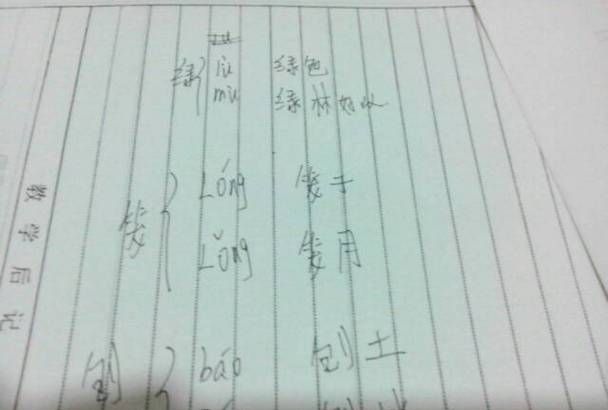 绿 lù 绿色
绿林好汉
笼 Lóng 笼子
Lǒng 笼月
刨 báo 刨土
教学后记